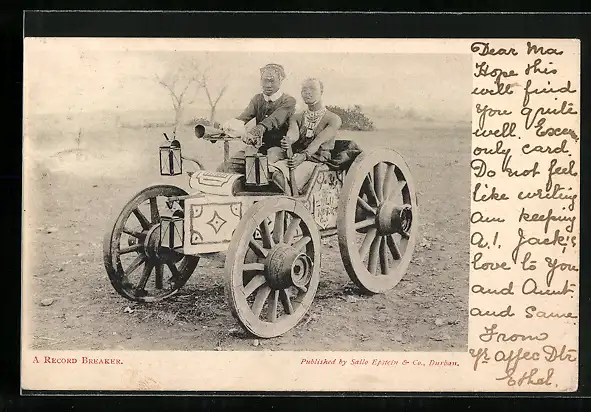 Dear Ma
Hope this
will find
you quite
well. Excuse
only card.
Do not feel
like writing
am keeping
A.1. Jack's
love to you
and Aunt.
and same
From
Yr affec Dtr
Ethel.
A RECORD BREAKER.
Published by Sallo Epstein & Co., Durban.